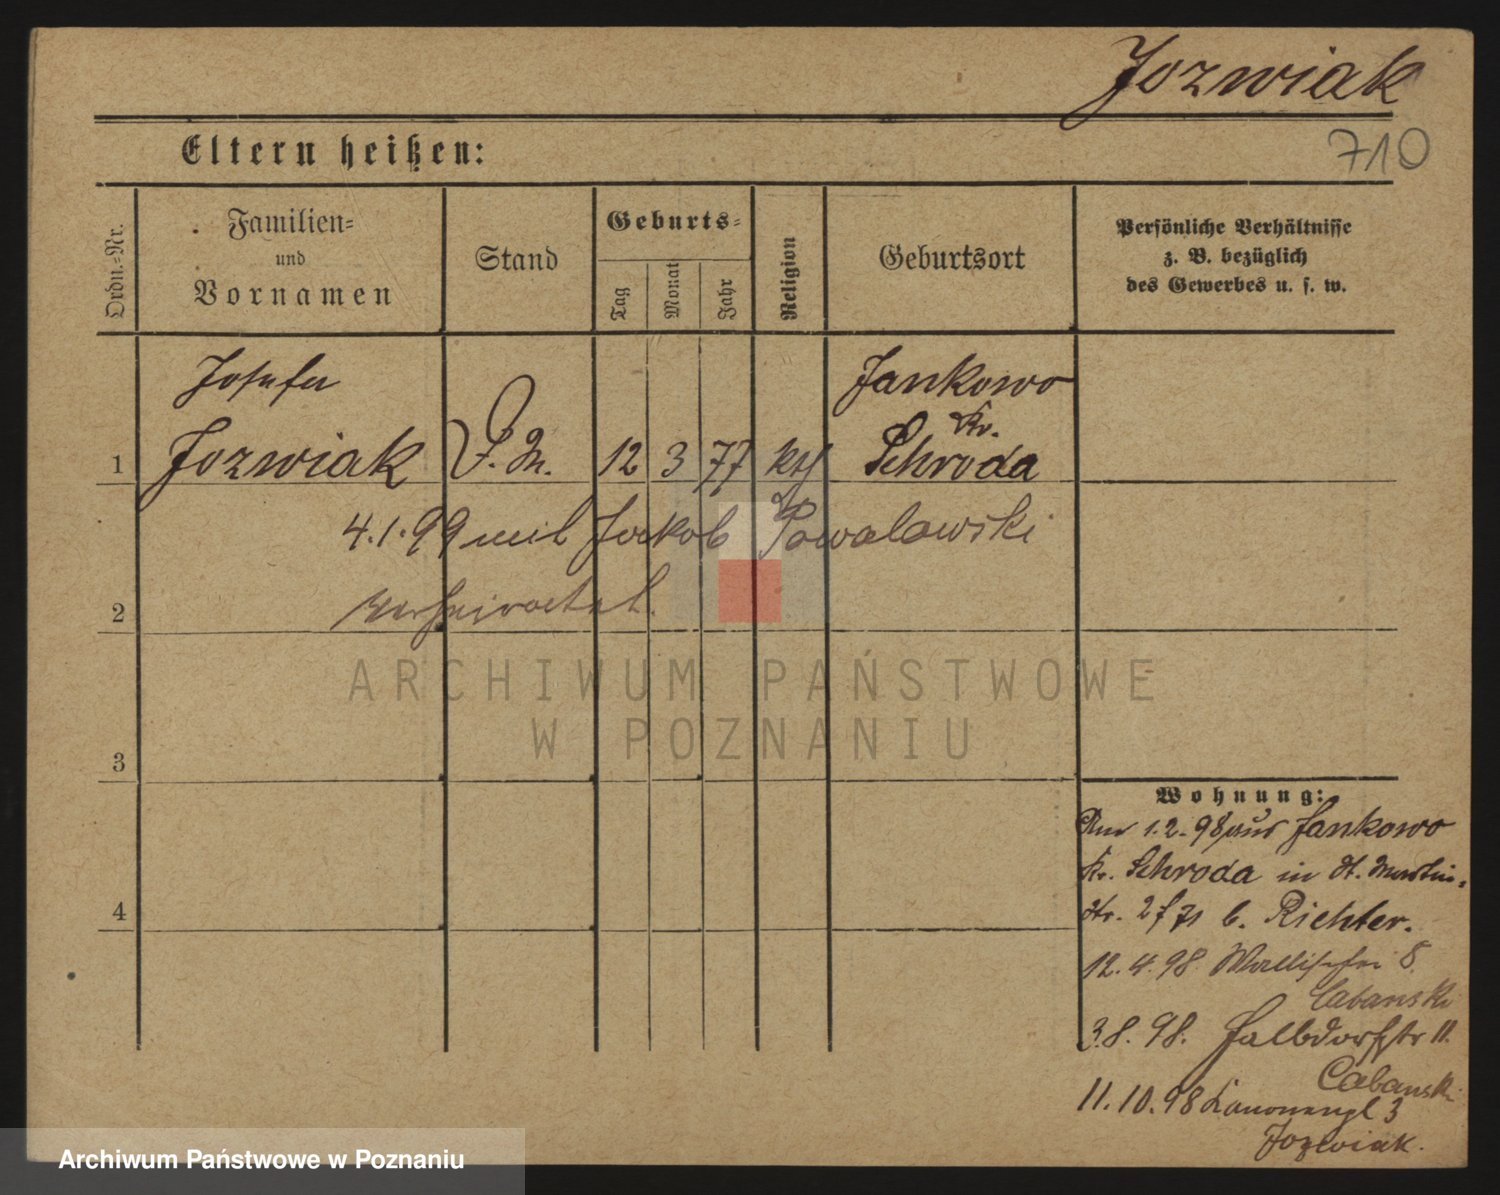 Jozwiak
710
Eltern heißen:
Ordn.-Nr.
Familien-
und
Vornamen
Stand
Geburts-
Tag
Monat
Jahr
Religion
Geburtsort
Persönliche Verhältnisse
z. B. bezüglich
des Gewerbes u. s. w.
Josefa
Jankowo
Kr.
1 Jozwiak D. M. 12 3 77 kth Schroda
4.1.99 mit Jakob Powalowski
2 verheiratet.
3
4
Wohnung:
Am 1.2.98 aus Jankowo
Kr. Schroda in St. Martin-
str. b. Richter.
12.4.98 Wallischei 8.
Cabanski
3.8.98. Halbdorfstr 11.
Cabanski
11.10.98 3
Jozwiak.
ARCHIWUM PAŃSTWOWE
W POZNANIU
Archiwum Państwowe w Poznaniu